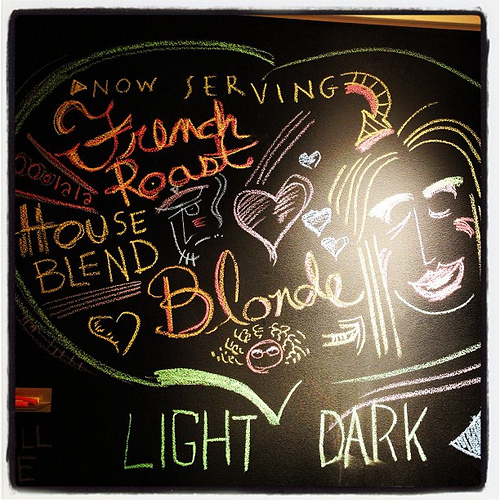 NOW SERVING
French
Roast
HOUSE
BLEND
Blonde
LIGHT DARK